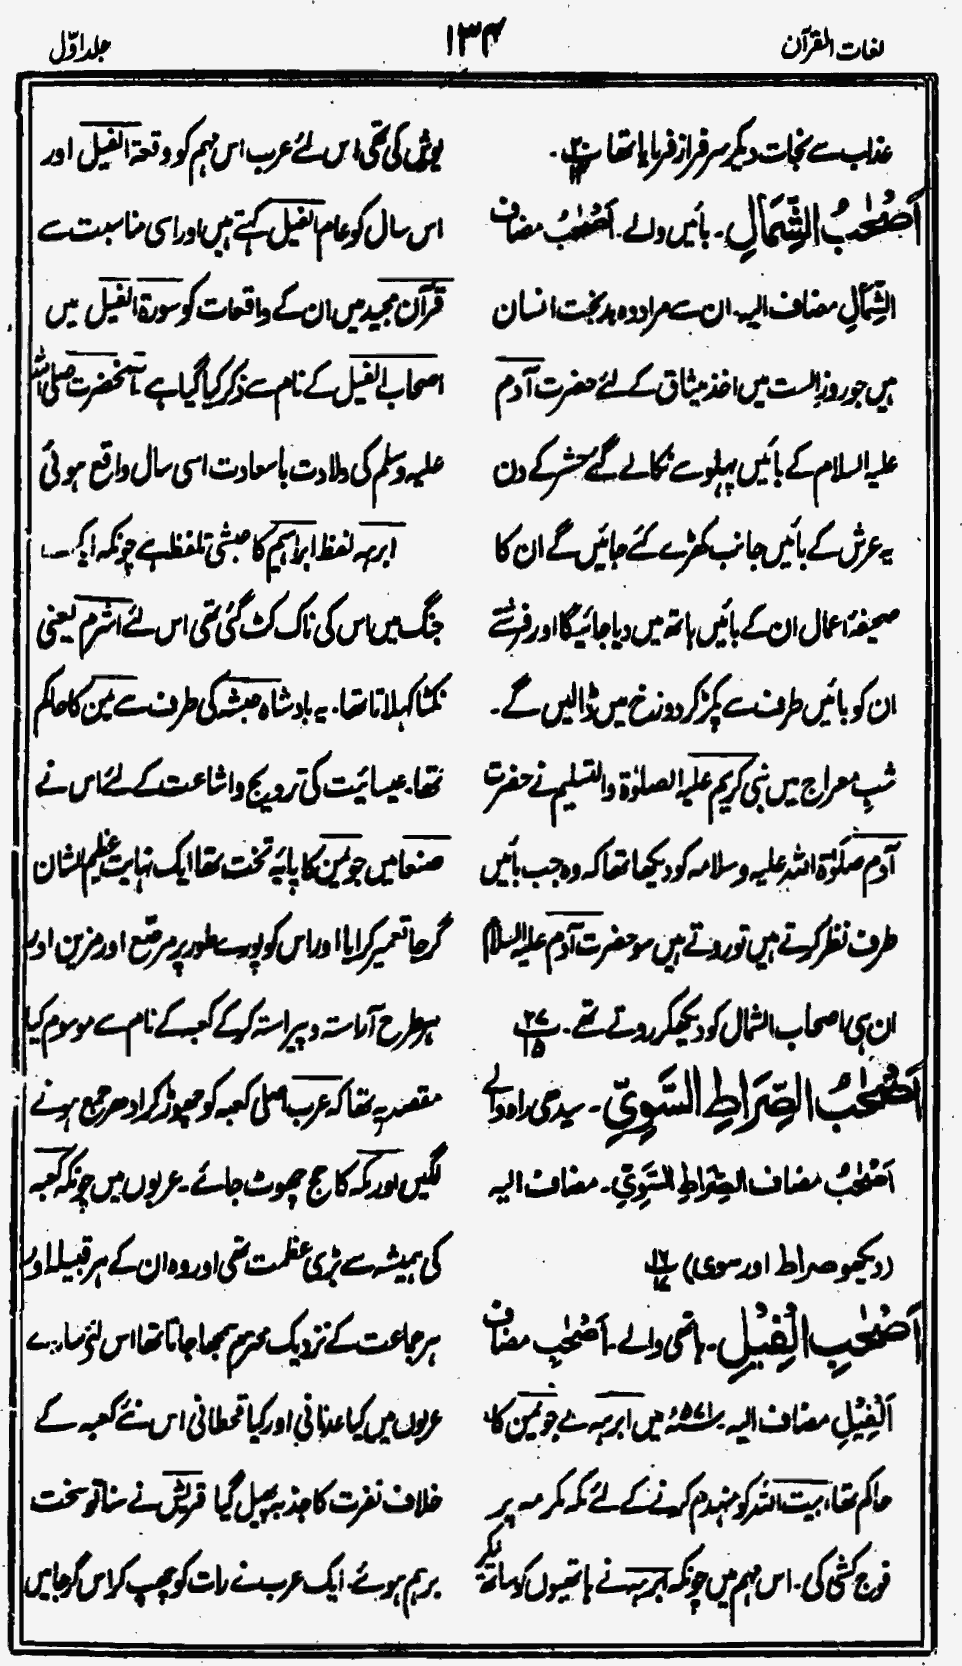 لغات القرآن
۱۳۴
جلد اوّل
عذاب سے نجات دیکر سرفراز فرمایا تھا
اَصْحٰبُ الشِّمَالِ۔ بائیں والے۔ اَصْحٰبُ مضاف
الشِّمَالِ مضاف الیہ۔ ان سے مراد وہ بدبخت انسان
ہیں جو روزِ الست میں اخذ میثاق کے لئے حضرت آدم
علیہ السلام کے بائیں پہلو سے نکالے گئے حشر کے دن
یہ عرش کے بائیں جانب کھڑے کئے جائیں گے ان کا
صحیفۂ اعمال ان کے بائیں ہاتھ میں دیا جائیگا اور فرشتے
ان کو بائیں طرف سے پکڑ کر دوزخ میں ڈالیں گے۔
شبِ معراج میں نبی کریم علیہ الصلوٰۃ والتسلیم نے حضرت
آدم صلوٰۃ اللہ علیہ وسلامہ کو دیکھا تھا کہ وہ جب بائیں
طرف نظر کرتے ہیں تو روتے ہیں سو حضرت آدم علیہ السلام
ان ہی اصحاب الشمال کو دیکھ کر روتے تھے۔ ۲۷ ۱۵
اَصْحٰبُ الصِّرَاطِ السَّوِیِّ۔ سیدھی راہ والے
اَصْحٰبُ مضاف الصِّرَاطِ السَّوِیِّ۔ مضاف الیہ
(دیکھو صراط اور سوی) ۱۶ ۱۷
اَصْحٰبِ الْفِیْلِ۔ ہاتھی والے۔ اَصْحٰبِ مضاف
اَلْفِیْلِ مضاف الیہ ۵۷۱ء میں ابرہہ نے جو یمن کا
حاکم تھا، بیت اللہ کو منہدم کرنے کے لئے مکہ مکرمہ پر
فوج کشی کی۔ اس مہم میں چونکہ ابرہہ نے ہاتھیوں کو ساتھ لیکر
یورش کی تھی اس لئے عرب اس مہم کو وقعۃ الفیل اور
اس سال کو عام الفیل کہتے ہیں اور اسی مناسبت سے
قرآن مجید میں ان کے واقعات کو سورۃ الفیل میں
اصحاب الفیل کے نام سے ذکر کیا گیا ہے آنحضرت صلی اللہ
علیہ وسلم کی ولادت باسعادت اسی سال واقع ہوئی
ابرہہ لفظ ابراہیم کا حبشی تلفظ ہے چونکہ ایک
جنگ میں اس کی ناک کٹ گئی تھی اس لئے اشرم یعنی
نکٹا کہلاتا تھا۔ یہ بادشاہ حبشہ کی طرف سے یمن کا حاکم
تھا۔ عیسائیت کی ترویج و اشاعت کے لئے اس نے
صنعا میں جو یمن کا پایۂ تخت تھا ایک نہایت عظیم الشان
گرجا تعمیر کرایا اور اس کو پورے طور پر مرصّع اور مزین اور
ہر طرح آراستہ و پیراستہ کر کے کعبہ کے نام سے موسوم کیا
مقصد یہ تھا کہ عرب اصلی کعبہ کو چھوڑ کر ادھر جمع ہونے
لگیں اور مکہ کا حج چھوٹ جائے۔ عربوں میں چونکہ کعبہ
کی ہمیشہ سے بڑی عظمت تھی اور وہ ان کے ہر قبیلہ اور
ہر جماعت کے نزدیک محترم سمجھا جاتا تھا اس لئے سارے
عربوں میں کیا عدنانی اور کیا قحطانی اس نئے کعبہ کے
خلاف نفرت کا جذبہ پھیل گیا قریش نے سنا تو سخت
برہم ہوئے۔ ایک عرب نے رات کو چھپ کر اس گرجا میں